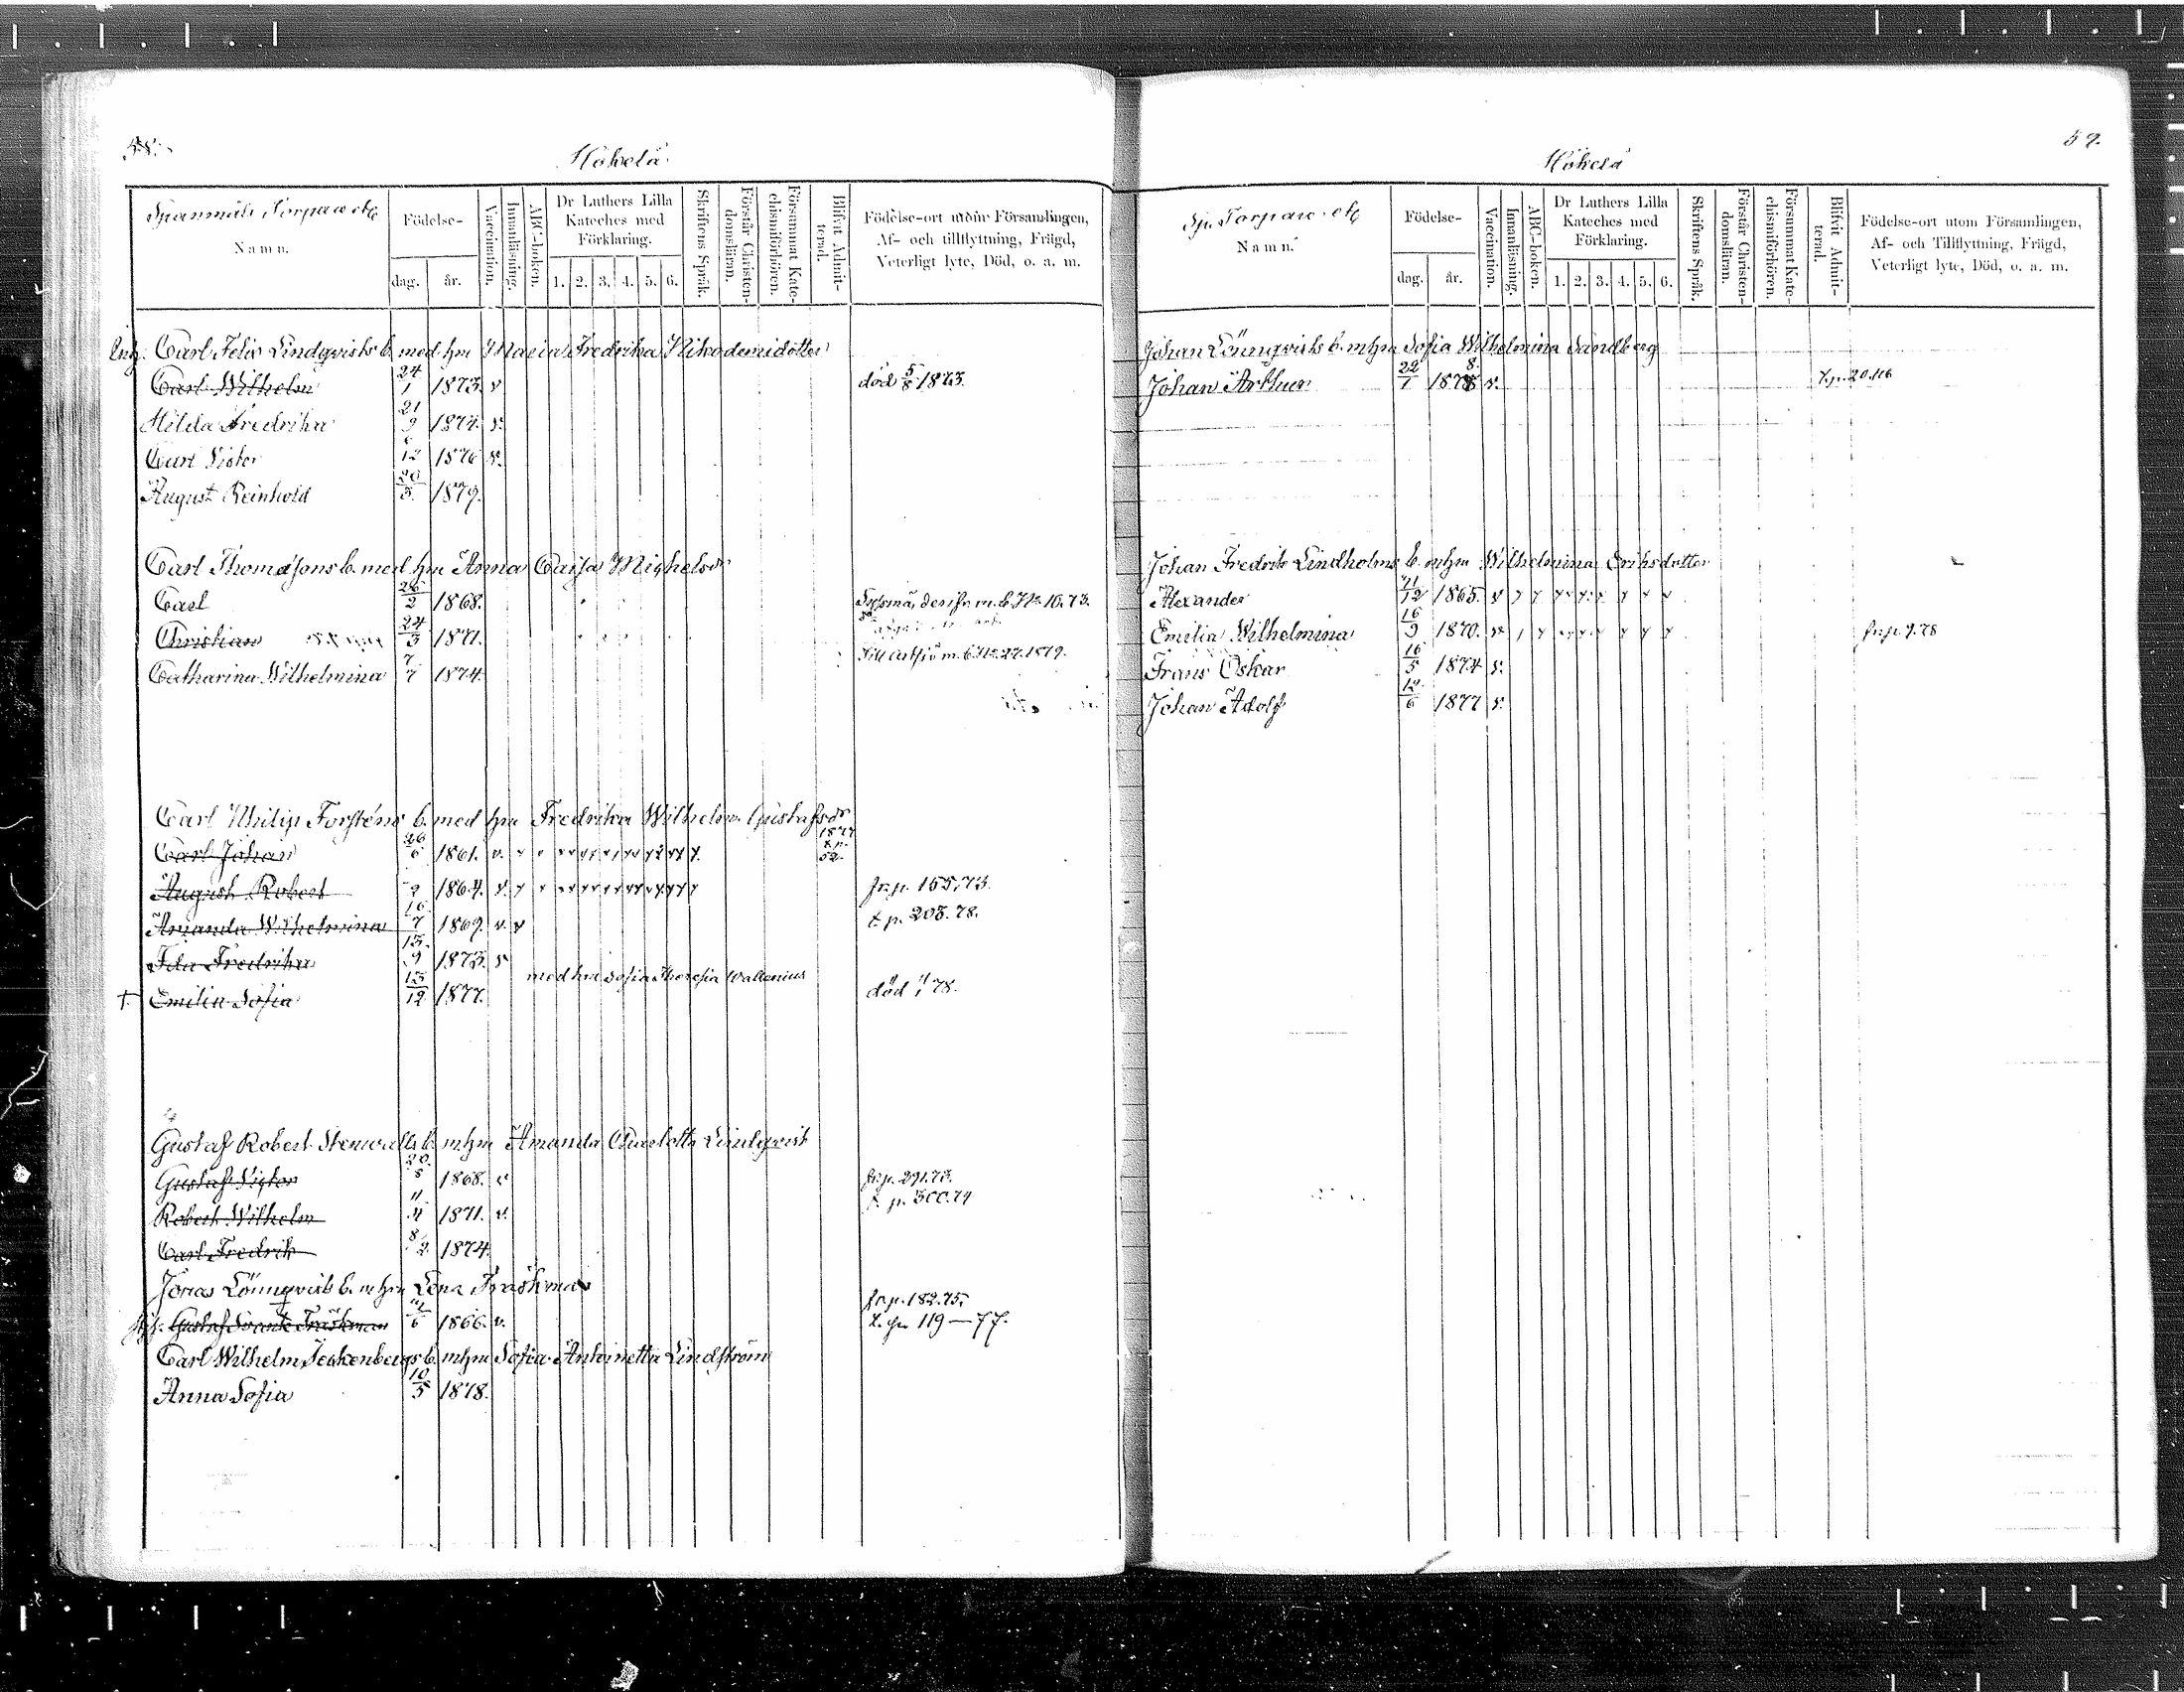 58.
Hökelä
Spanmåls Torpare etc
Namn.
Födelse-
dag. år.
Vaccination.
Innanläsning.
ABC-boken.
Dr Luthers Lilla
Kateches med
Förklaring.
1. 2. 3. 4. 5. 6.
Skriftens Språk.
Förstår Christen-
domsläran.
Försummat Kate-
chismiförhören.
Blifvit Admit-
terad.
Födelse-ort utom Församlingen,
Af- och tillflyttning, Frägd,
Veterligt lyte, Död, o. a. m.
Carl Felix Lindqvists b. med hm Maria Fredrika Nikodemidotter
Carl Wilhelm 24/1 1873. v död 5/8 1873.
Hilda Fredrika 21/9 1874. v.
Carl Victor 6/12 1876 v.
August Reinhold 20/3 1879.
Carl Thomassons b. med hm Anna Caisa Michelsdr
Carl 26/2 1868. Sysmä, m. b. No 16. 73.
Christian 24/3 1871.
Catharina Wilhelmina 7/7 1874. Till m. b. No 27. 1879.
Carl Philip Forsténs b. med hm Fredrika Wilhelm. Gustafsdr
Carl Johan 26/6 1861. v. 1877 t. p. 52.
August Robert 2 1864. v. fr. p. 165, 73.
Amanda Wilhelmina 16/7 1869. v. v t. p. 205. 78.
Fredrika 13/9 1873. v
med hu Sofia Theresia Wallenius
† Emilia Sofia 13/12 1877. död 11/1 78.
Gustaf Robert Stenvalls b. m hm Amanda Charlotta Lindqvist
Gustaf Victor 20/8 1868. v fr. p. 291. 73.
Robert Wilhelm 11/4 1871. v. t. p. 300. 74
Carl Fredrik 8/2 1874.
Jonas Lönnqvists b. m hm Lena Träskman
Gustaf Träskman 1866. v. fr. p. 182. 75.
t. p. 119 — 77.
Carl Wilhelm b. m hm Sofia Antoinetta Lindström
Anna Sofia 10/5 1878.
59.
Hökelä
Sp. Torpare etc
Namn.
Födelse-
dag. år.
Vaccination.
Innanläsning.
ABC-boken.
Dr Luthers Lilla
Kateches med
Förklaring.
1. 2. 3. 4. 5. 6.
Skriftens Språk.
Förstår Christen-
domsläran.
Försummat Kate-
chismiförhören.
Blifvit Admit-
terad.
Födelse-ort utom Församlingen,
Af- och Tillflyttning, Frägd,
Veterligt lyte, Död, o. a. m.
Johan Lönnqvists b. m hm Sofia Wilhelmina Sandberg
Johan Arthur 22/1 1878 v.
Johan Fredrik Lindholms b. m hm Wilhelmina Eriksdotter
Alexander 21/12 1865. v
Emilia Wilhelmina 16/9 1870. v. fr. p. 9. 78
Frans Oskar 16/5 1874 v.
Johan Adolf 12/6 1877 v.